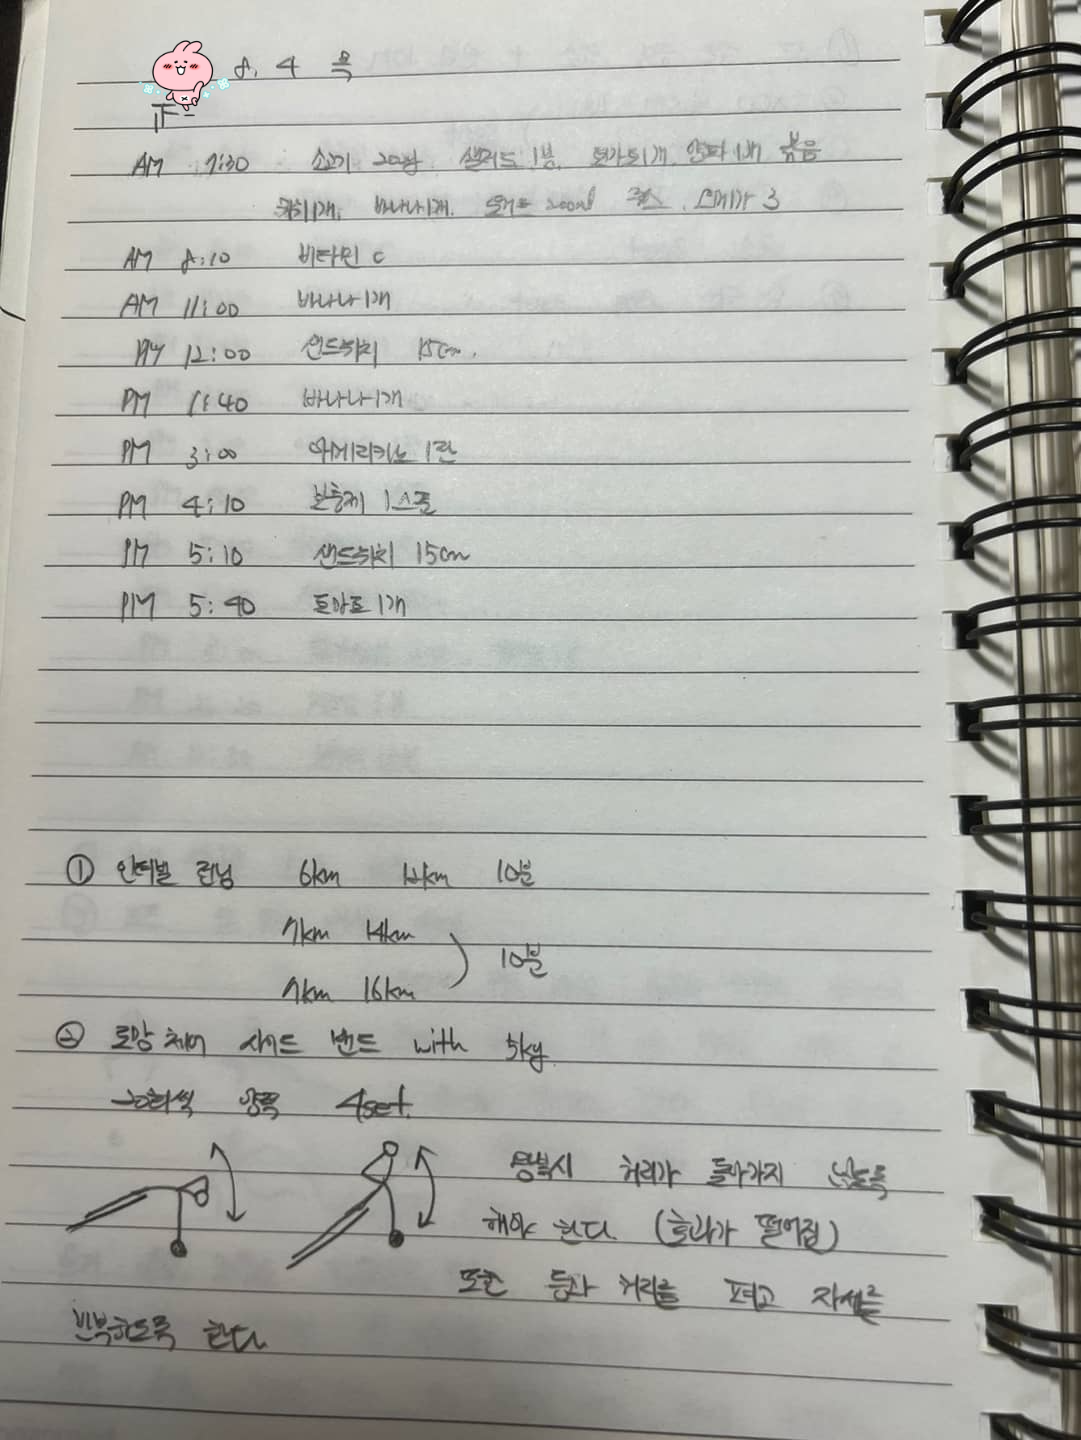 8. 4 목
正一
AM 7:30 소고기 200g. 샐러드 1분. 토마토1개. 양파 1개 볶음
키위1개. 바나나1개. 200ml 쥬스. 오메가 3
AM 8:10 비타민 C
AM 11:00 바나나1개
12:00 샌드위치 15cm.
PM 1:40 바나나1개
PM 3:00 아메리카노 1잔
PM 4:10 보충제 1스쿱
PM 5:10 샌드위치 15cm
PM 5:40 토마토 1개
① 인터벌 런닝 6km 12km 10분
7km 14km
7km 16km 10분
② 로망 체어 사이드 밴드 with 5kg
20회씩 양쪽 4set.
허리가 돌아가지 않도록
해야 한다. (효과가 떨어짐)
또한 등과 허리를 펴고 자세를
반복하도록 한다.